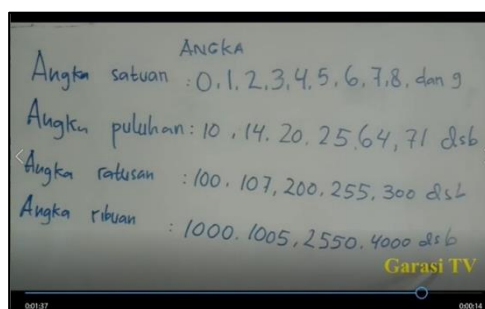 ANGKA
Angka satuan : 0, 1, 2, 3, 4, 5, 6, 7, 8, dan 9
Angka puluhan : 10, 14, 20, 25, 64, 71 dsb
Angka ratusan : 100, 107, 200, 255, 300 dsb
Angka ribuan : 1000, 1005, 2550, 4000 dsb
Garasi TV
0:01:37
0:00:14